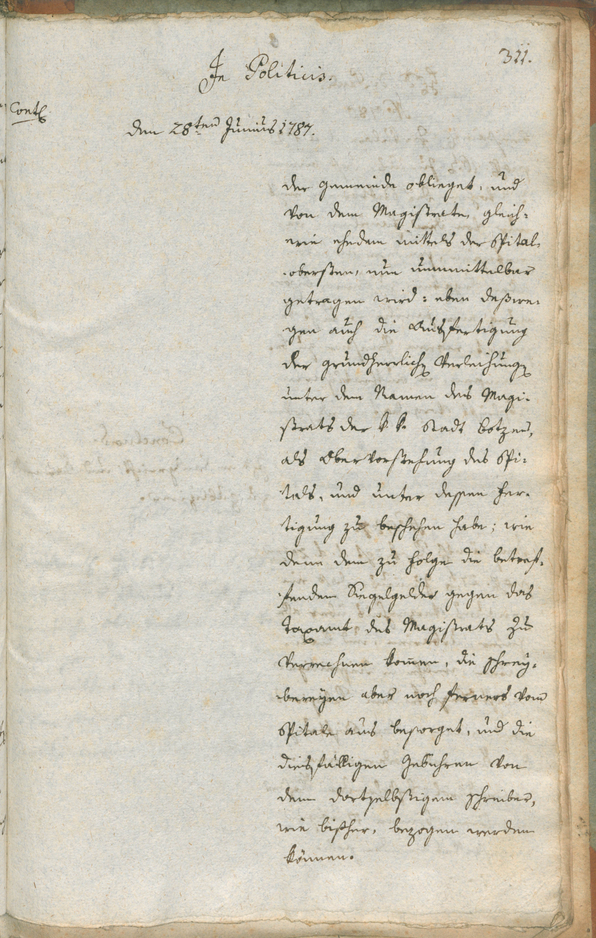 311.
In Politicis.
Cont.
den 28ten Junius 1787.
der gemeinde oblieget, und
von dem Magistrate, gleich-
wie ehedem mittels der Spital-
obersten, nun unmittelbar
getragen wird: eben deßwe-
gen auch die Ausfertigung
der grundherrlich Verleihung
unter dem Namen des Magi-
strats der k k Stadt Botzen,
als Obervorstehung des Spi-
tals, und unter dessen Fer-
tigung zu beschehen habe; wie
denn dem zu Folge die betref-
fenden Siegelgelder gegen das
Taxamt des Magistrats zu
verrechnen kommen, die schrey-
bereyen aber noch ferners vom
Spitale aus besorget, und die
diesfälligen Gebühren von
dem dortselbstigem schreiber,
wie bisher, bezogen werden
können.